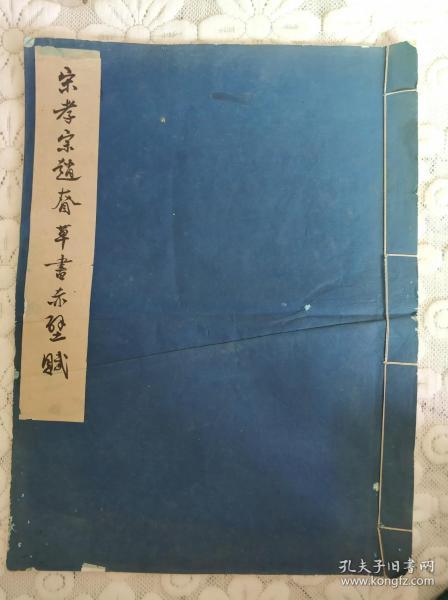 宋孝宗趙眘草書赤壁賦
孔夫子旧书网
www.kongfz.com